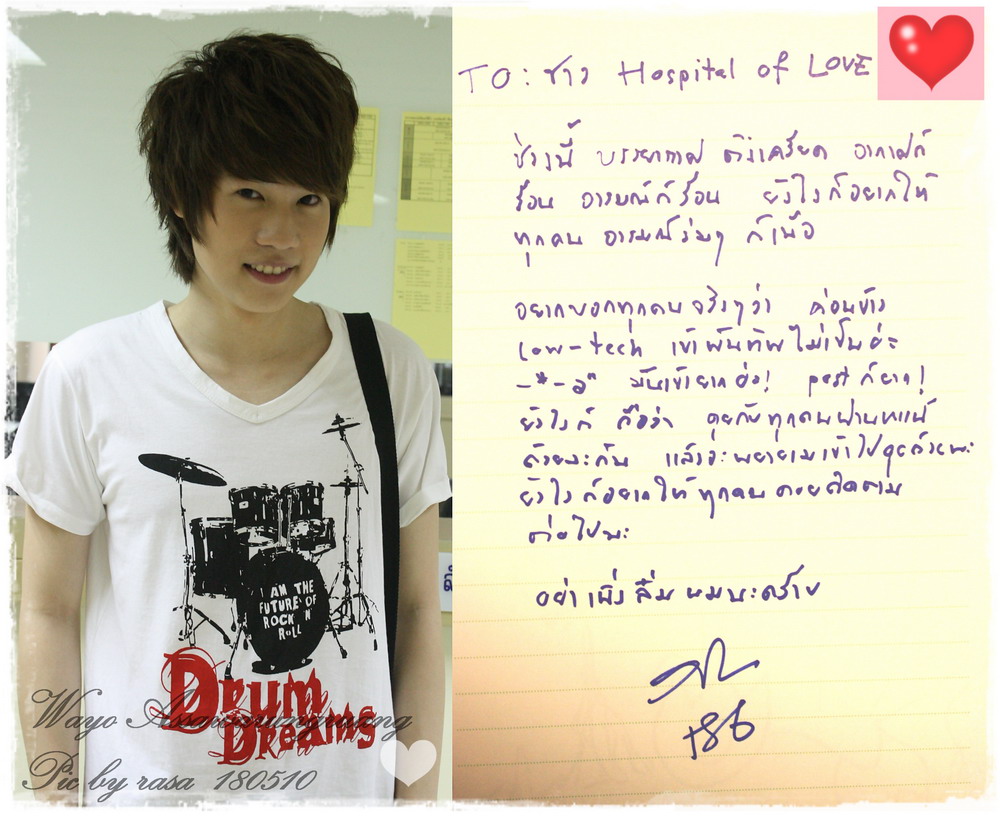 I AM THE
FUTURE OF
ROCK N
ROLL
DRUM
DREAMS
Wayo
Pic by rasa 180510
TO: ชาว Hospital of LOVE
ช่วงนี้ บรรยากาศ ตึงเครียด อากาศก็
ร้อน อารมณ์ก็ร้อน ยังไงก็อยากให้
ทุกคน อารมณ์ร่มๆ ก็
อยากบอกทุกคนจริงๆว่า ค่อนข้าง
low-tech เข้าพันทิพไม่เป็นอ่ะ
-*-a" มันเข้ายากอ่ะ! post ก็ยาก!
ยังไงก็ ถือว่า คุยกับทุกคนผ่าน
ด้วยละกัน แล้วจะพยายามเข้าไปดูด้วยนะ
ยังไงก็อยากให้ทุกคนคอยติดตาม
ต่อไปนะ
อย่าเพิ่งลืมผมนะคร้าบ